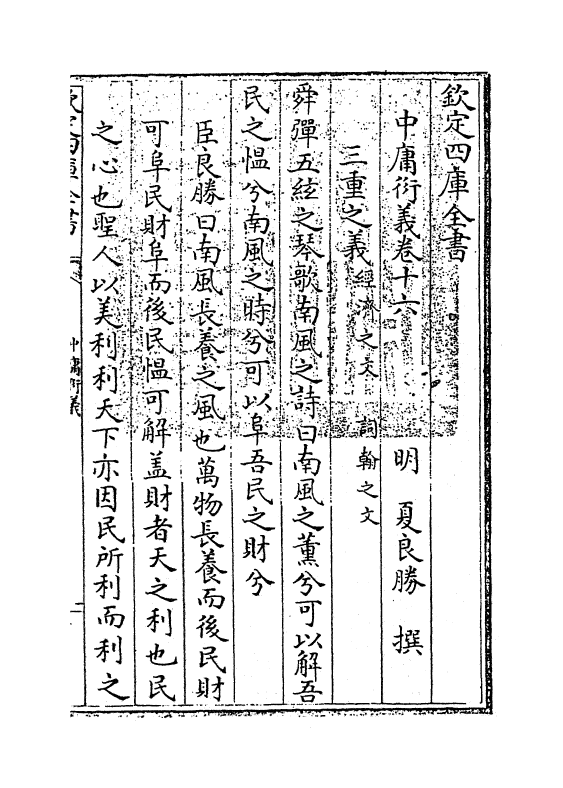 欽定四庫全書
中庸衍義卷十六
明 夏良勝 撰
三重之義經濟之文 詞翰之文
舜彈五絃之琴歌南風之詩曰南風之薫兮可以解吾
民之愠兮南風之時兮可以阜吾民之財兮
臣良勝曰南風長養之風也萬物長養而後民財
可阜民財阜而後民愠可解盖財者天之利也民
之心也聖人以美利利天下亦因民所利而利之
欽定四庫全書
中庸衍義